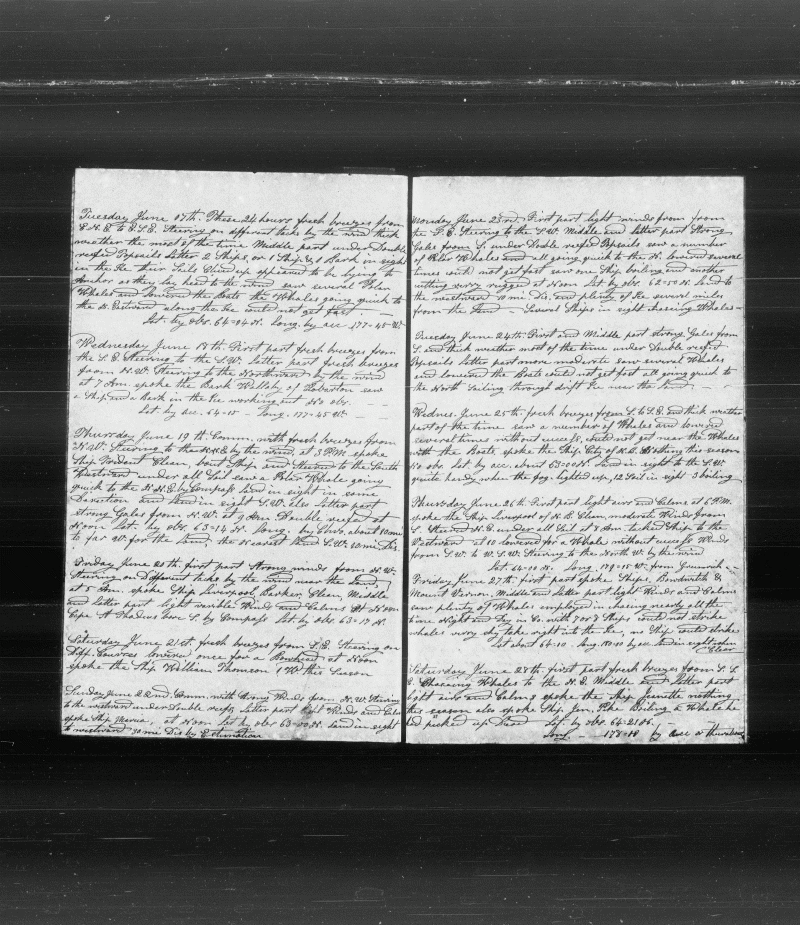 Tuesday June 17th. These 24 hours fresh breezes from
E.N.E. to E.S.E. Steering on different tacks by the wind thick
weather the most of the time Middle part under Double
reefed Topsails Latter 2 Ships, or 1 Ship & 1 Bark in sight
in the Ice their Sails Clued up appeared to be lying to
Anchor as they lay head to the wind saw several Polar
Whales and lowered the Boats the Whales going quick to
the N. Eastward along the Ice could not get fast.
Lat. by Obs. 64-04 N. Long. by acc 177-45 W.
Wednesday June 18th. First part fresh breezes from
the S.E. Steering to the S.W. Latter part fresh breezes
from N.W. Steering to the Northward by the wind
at 7 Am. spoke the Bark of Hobarton saw
a Ship and a bark in the Ice working out No obs.
Lat by acc. 64-15 - Long. 177-45 W.
Thursday June 19th. Comm. with fresh breezes from
N.W. Steering to the N.N.E. by the wind, at 3 P.M. spoke
Ship Trident Clean, bout Ship and Steered to the South
Eastward under all Sail saw a Polar Whale going
quick to the N.N.E. by Compass land in sight in same
Direction and land in sight S.W. also latter part
strong Gales from N.W. at 9 Am. Double reefed at
Noon Lat. by obs. 63-14 N. Long. by Chro. about 10 mi
to far W. for the Land, the nearest land S.W. 20 mi Dis.
Friday June 20th. first part Strong winds from N.W.
Steering on Different tacks by the wind near the land,
at 5 Am. spoke Ship Liverpool, Barker, Clean, Middle
and Latter part light varible Winds and Calms At Noon
Cape St Thadeus bore S. by Compass Lat by obs. 63-17 N.
Saturday June 21st. fresh breezes from S.E. Steering on
Diff. Courses lowered once for a Bowhead at Noon
spoke the Ship William Thomson 1 W this Season
Sunday June 22nd. Comm. with strong Winds from N.W. Steering
to the westward under Double reefs Latter part light Winds and Calm
spoke Ship Maria, at Noon Lat by obs 63-00 N. land in sight
to westward 30 mi Dis by Estimation
Monday June 23rd. First part light winds from from
the S.E. Steering to the S.W. Middle and latter part Strong
Gales from S. under Double reefed Topsails saw a number
of Polar Whales and all going quick to the N. lowered several
times could not get fast saw one Ship boiling and another
cutting very rugged at Noon Lat by obs. 62-50 N. Land to
the westward 10 mi Dis, and plenty of Ice several miles
from the Land - Several Ships in sight chasing Whales -
Tuesday June 24th. First and Middle part strong Gales from
S. and thick weather most of the time under Double reefed
Topsails latter part more moderate saw several Whales
and lowered the Boats could not get fast all going quick to
the North Sailing through drift Ice near the land
Wednes. June 25th. fresh breezes from S. to S.E. and thick weather
part of the time saw a number of Whales and lowered
several times without success, could not get near the Whales
with the Boats, spoke the Ship City of N.B. Nothing this season
No obs. Lat by acc. about 63-00 N. Land in sight to the S.W.
quite handy when the fog lighted up, 12 Sail in sight 3 boiling
Thursday June 26th. First part light airs and Calms at 6 P.M.
spoke the Ship Liverpool of N.B. Clean, moderate Winds from
S. Steered N.E. under all Sail at 8 Am. tacked Ship to the
Westward at 10 lowered for a Whale without success Winds
from S.W. to W.S.W. Steering to the North W. by the wind
Lat. 64-00 N. Long. 179-15 W. from Greenwich
Friday June 27th. first part spoke Ships, Bowditch &
Mount Vernon, Middle and Latter part light Winds and Calms
saw plenty of Whales employed in chasing nearly all the
time Night and Day in Co. with 7 or 8 Ships could not strike
whales very shy take right into the Ice, no Ship could strike
Lat about 64-10 Long. 180-10 by acc. Land in sight when
Clear
Saturday June 28th. first part fresh breezes from S.S.
E. Chaseing Whales to the N.E. Middle and Latter part
light airs and Calms spoke the Ship Jeanette nothing
this season also spoke Ship Gen. Pike Boiling a Whale he
had picked up Dead Lat. by obs. 64-21 N.
Long. - 178-18 by acc